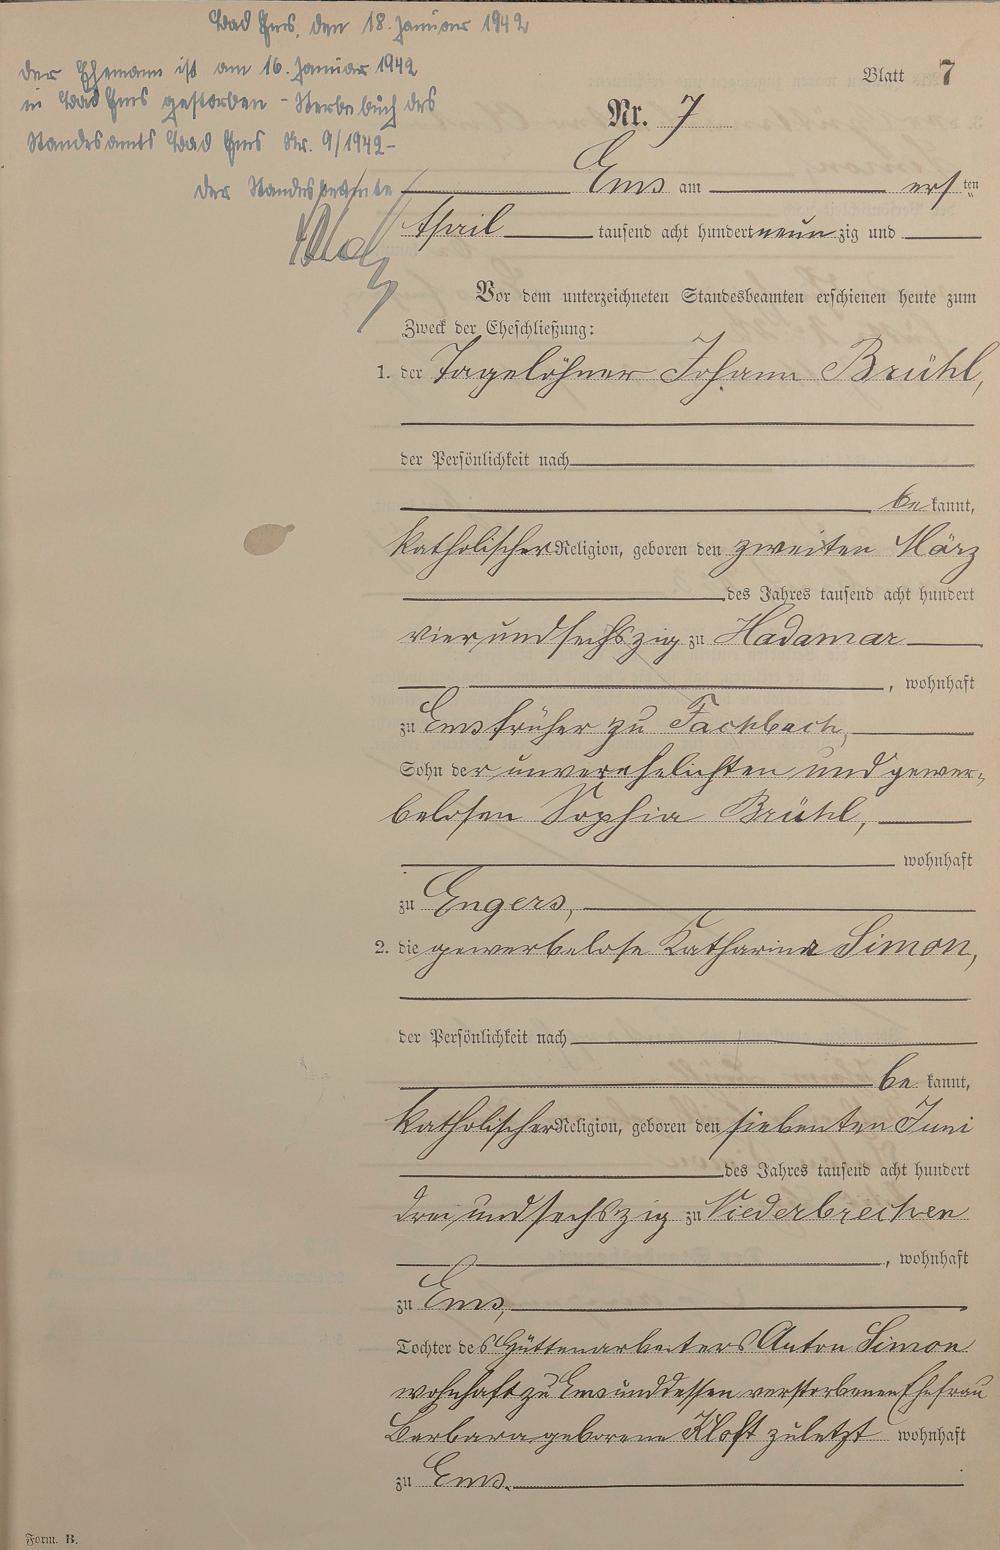 Bad Ems, den 18. Januar 1942
Der Ehemann ist am 16. Januar 1942
in Bad Ems gestorben - Sterbebuch des
Standesamts Bad Ems Nr. 9/1942-
Der Standesbeamte
Blatt 7
Nr. 7
Ems am ersten
April tausend acht hundert neunzig und
Vor dem unterzeichneten Standesbeamten erschienen heute zum
Zweck der Eheschließung:
1. der Tagelöhner Johann Brühl,
der Persönlichkeit nach
bekannt,
katholischer Religion, geboren den zweiten März
des Jahres tausend acht hundert
vierundsechszig zu Hadamar
, wohnhaft
zu Ems früher zu Fachbach,
Sohn der unverehelichten und gewer-
belosen Sophia Brühl,
wohnhaft
zu Engers,
2. die gewerbelose Katharina Simon,
der Persönlichkeit nach
bekannt,
katholischer Religion, geboren den siebenten Juni
des Jahres tausend acht hundert
dreiundsechszig zu Niederbrechen
, wohnhaft
zu Ems,
Tochter des Hüttenarbeiters Anton Simon
wohnhaft zu Ems und dessen verstorbenen Ehefrau
Barbara geborene Kloft zuletzt wohnhaft
zu Ems.
Form. B.